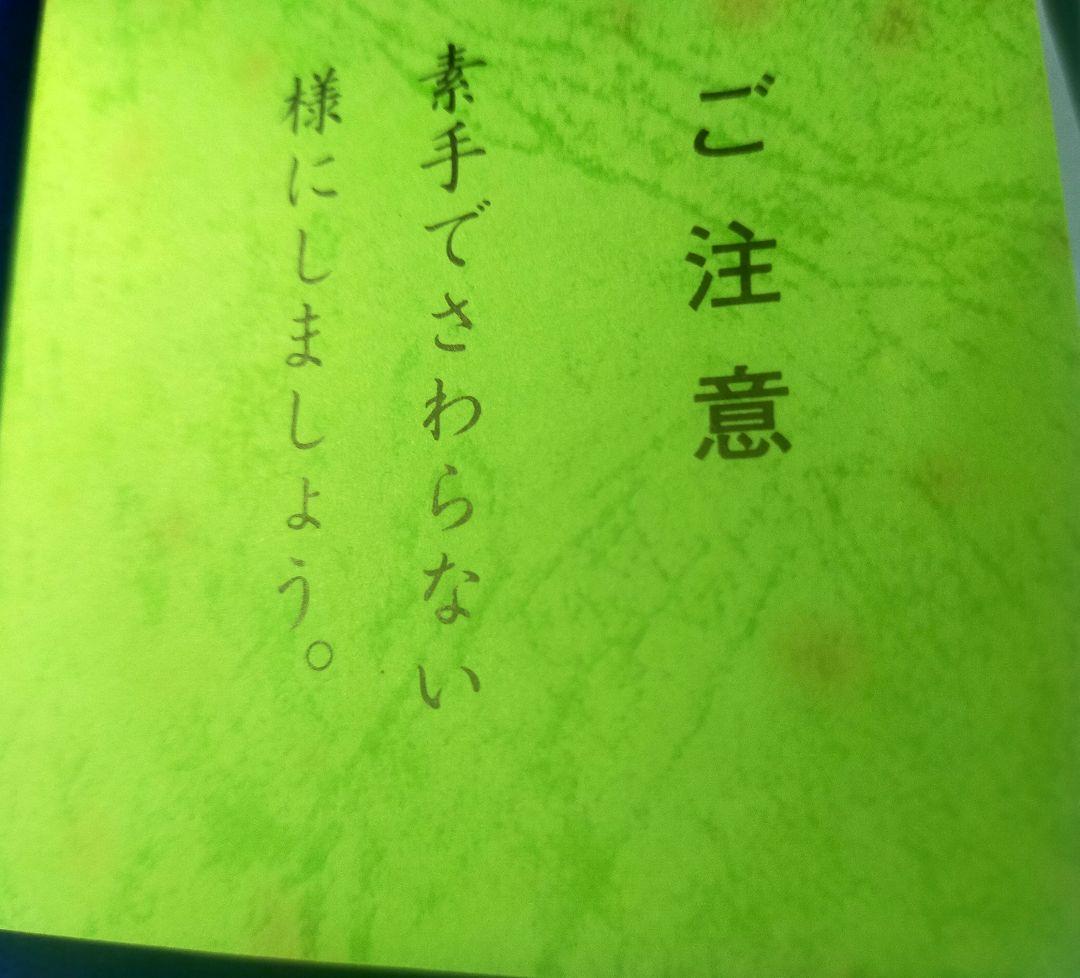 ご注意
素手でさわらない
様にしましょう。